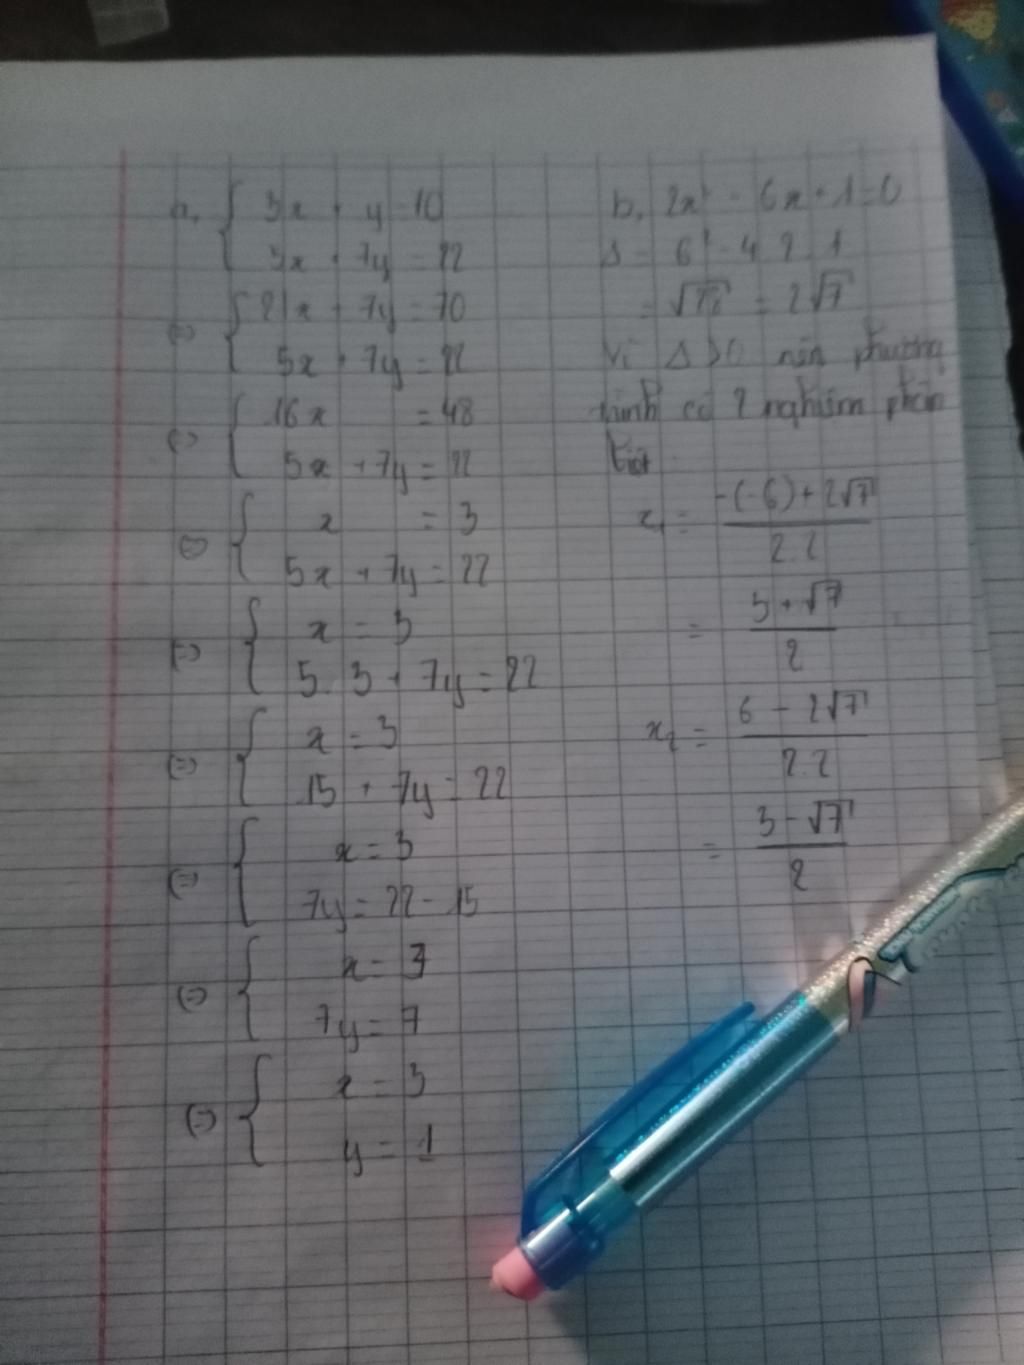 a, { 3x + y = 10
3x + 7y = 22
(=) { 21x + 7y = 70
5x + 7y = 22
(=) { 16x = 48
5x + 7y = 22
(=) { x = 3
5x + 7y = 22
(=) { x = 3
5. 3 + 7y = 22
(=) { x = 3
15 + 7y = 22
(=) { x = 3
7y = 22 - 15
(=) { x = 3
7y = 7
(=) { x = 3
y = 1
b, 2x² - 6x + 1 = 0
Δ = 6² - 4. 2. 1
= √28 = 2√7
Vì Δ > 0 nên phương
trình có 2 nghiệm phân
biệt
x₁ = (-(-6) + 2√7) / 2.2
= (3 + √7) / 2
x₂ = (6 - 2√7) / 2.2
= (3 - √7) / 2